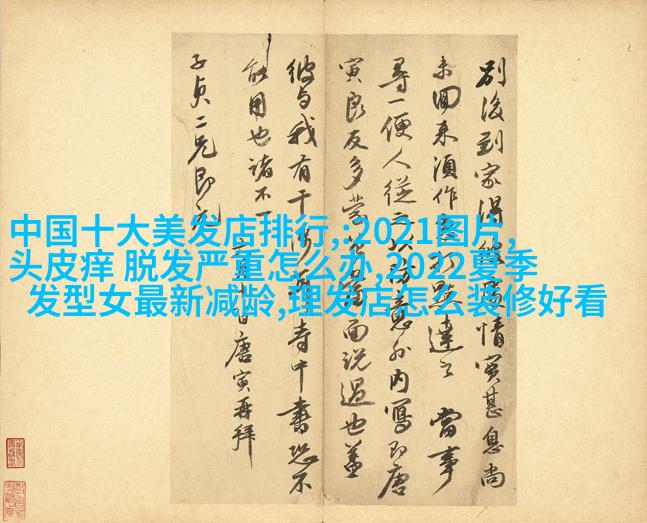 中国十大美发店排行,:2021图片,
头皮痒 脱发严重怎么办,2022夏季
发型女最新减龄,理发店怎么装修好看
別後到家得 情 甚息尚
未回來須作 達 當事
尋一便人從 內寫即唐
寅良友多勞 面説過也蓋
彼与我有干 寺中書恐不
能用也諸不 日唐寅再拜
子貞二兄即